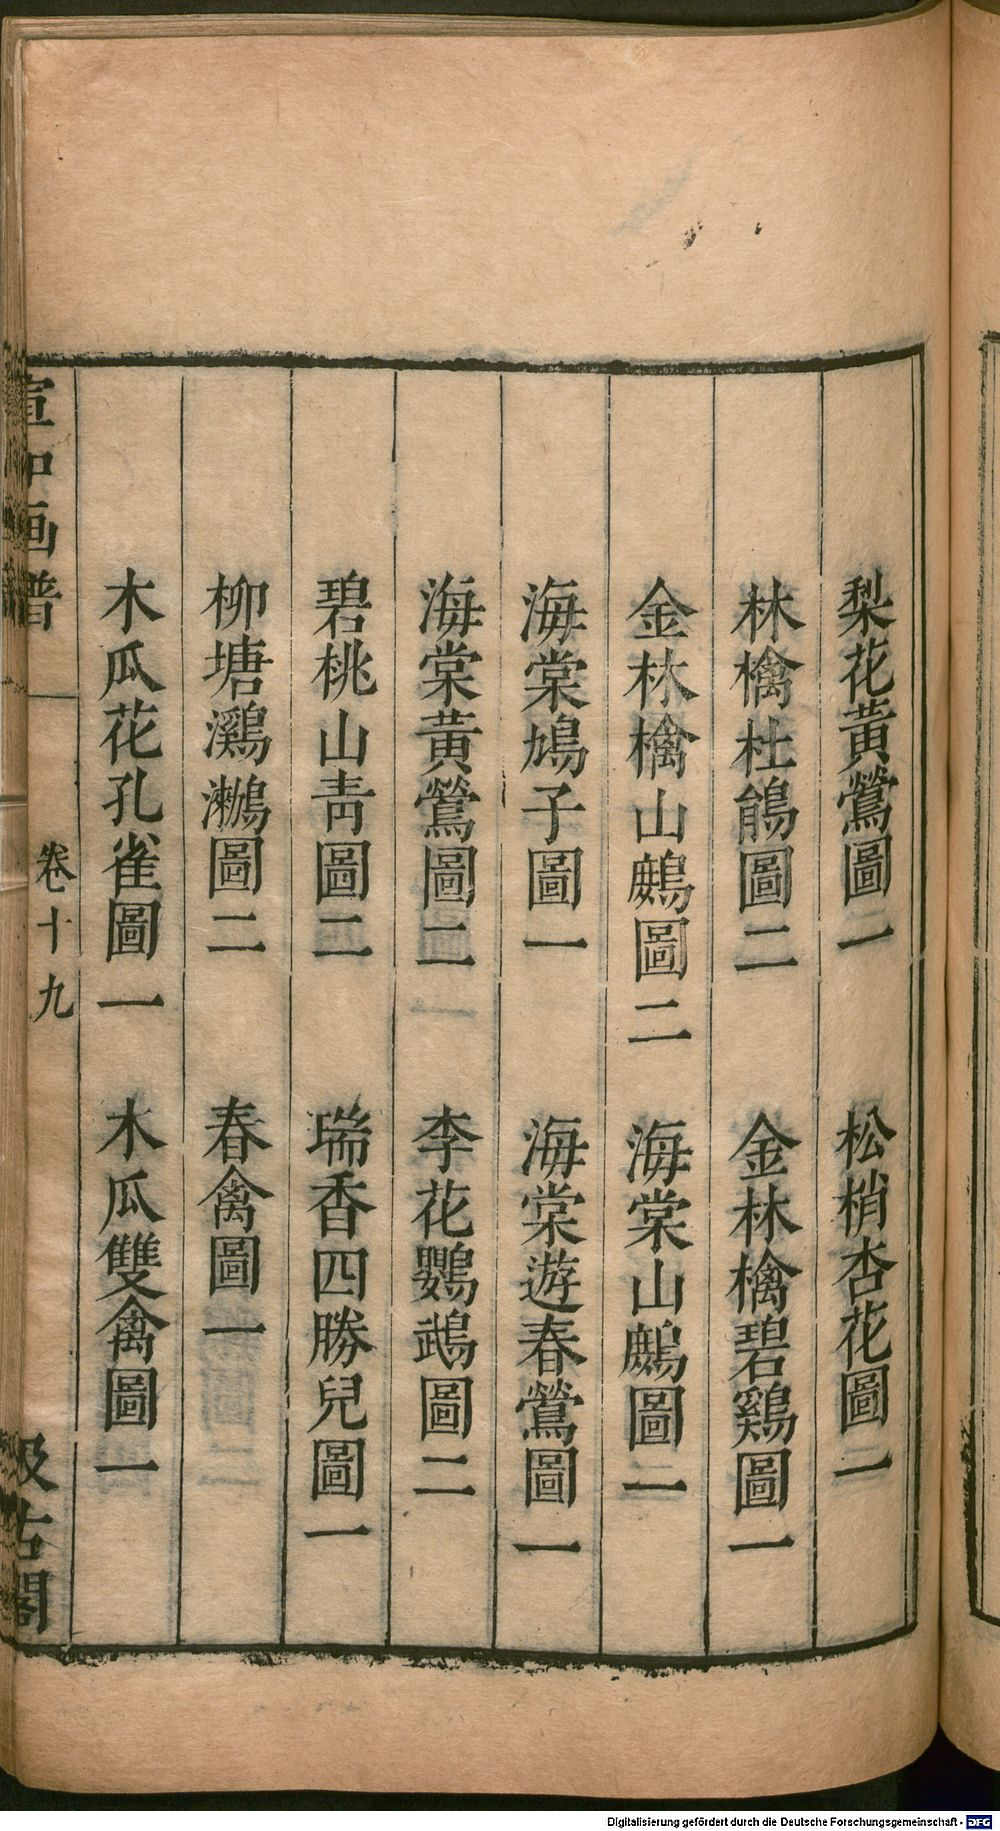 梨花黄鶯圖一　松梢杏花圖一
林檎杜鵑圖二　金林檎碧鷄圖一
金林檎山鷓圖二　海棠山鷓圖一
海棠鳩子圖一　海棠遊春鶯圖一
海棠黄鶯圖二　李花鸚鵡圖二
碧桃山青圖二　瑞香四勝兒圖一
柳塘鸂鷘圖二　春禽圖一
木瓜花孔雀圖一　木瓜雙禽圖一
宣和画譜　卷十九　汲古閣
Digitalisierung gefördert durch die Deutsche Forschungsgemeinschaft - DFG